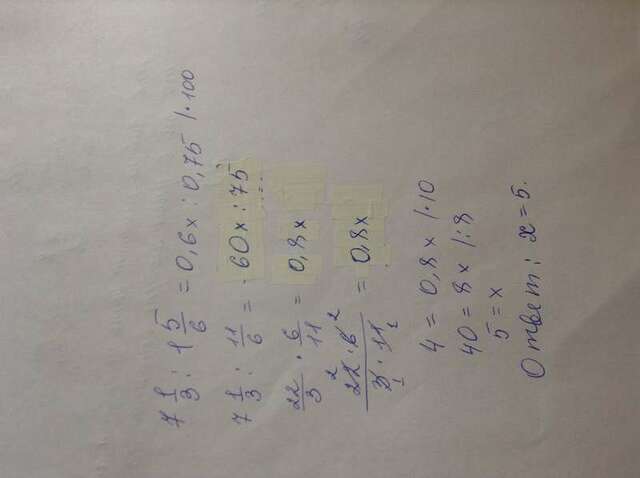 7 1/3 : 1 5/6 = 0,6x : 0,75 |·100
7 1/3 : 11/6 = 60x : 75
22/3 · 6/11 = 0,8x
22·6/3·11 = 0,8x
4 = 0,8x |·10
40 = 8x |:8
5 = x
Ответ: x = 5.